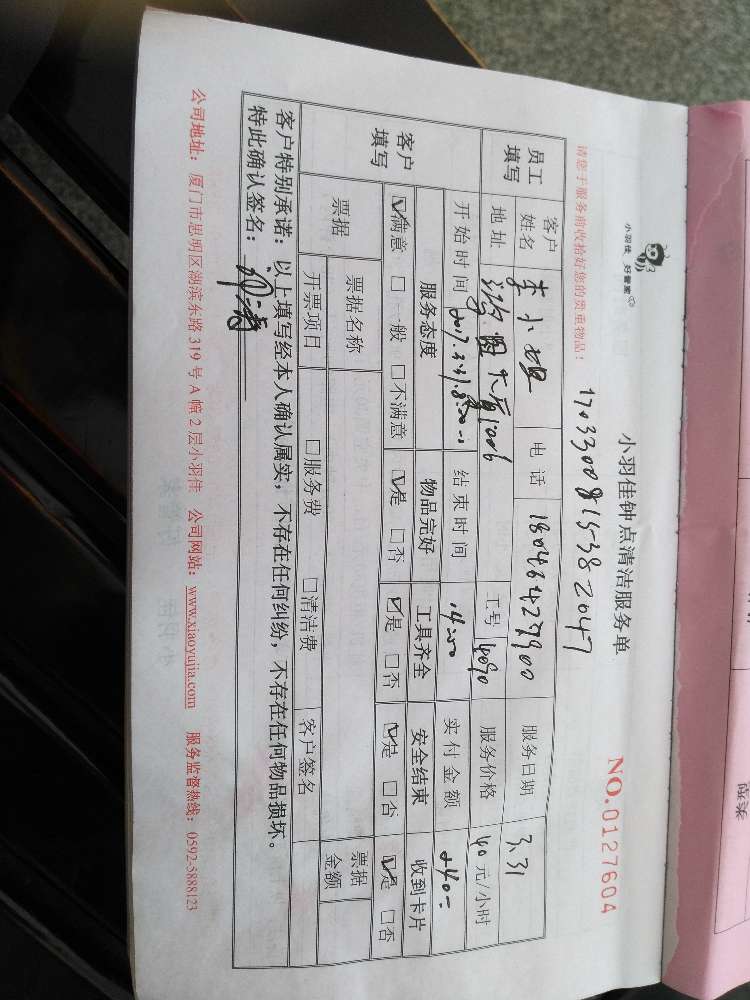 小羽佳 好管家
小羽佳钟点清洁服务单
NO.0127604
请您于服务前收拾好您的贵重物品!
1703300815382047
员工填写 客户姓名 李小姐 电话 服务日期 3.31
地址 1006 工号 4090 服务价格 40 元/小时
开始时间 结束时间 14:00 实付金额 240-
客户填写 服务态度 物品完好 工具齐全 安全结束 收到卡片
☑满意 □一般 □不满意 ☑是 □否 ☑是 □否 ☑是 □否 ☑是 □否
票据 票据名称 票据金额
开票项目 □服务费 □清洁费 客户签名
客户特别承诺:以上填写经本人确认属实,不存在任何纠纷,不存在任何物品损坏。
特此确认签名:
公司地址:厦门市思明区湖滨东路 319 号 A 幢 2 层小羽佳 公司网站:www.xiaoyujia.com 服务监督热线:0592-5888123